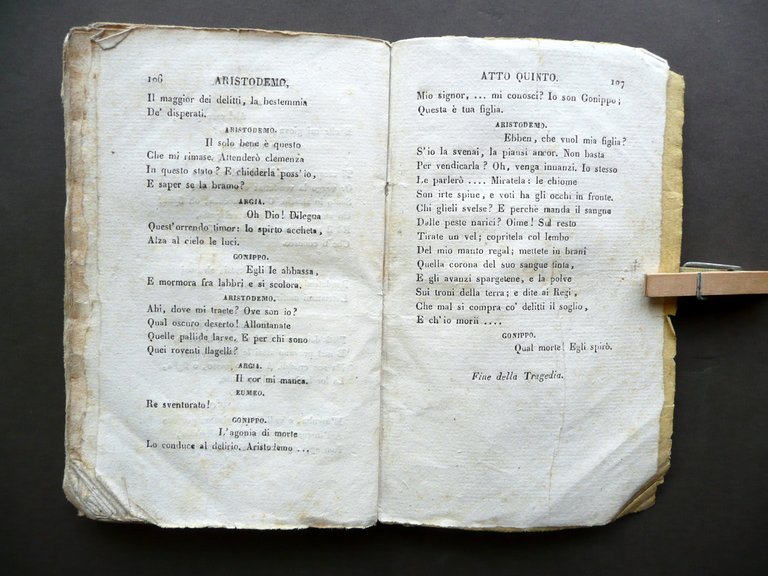 106 ARISTODEMO,
Il maggior dei delitti, la bestemmia
De' disperati.
ARISTODEMO.
Il solo bene è questo
Che mi rimase. Attenderò clemenza
In questo stato? E chiederla poss'io,
E saper se la bramo?
ARGIA.
Oh Dio! Dilegua
Quest'orrendo timor: lo spirto accheta,
Alza al cielo le luci.
GONIPPO.
Egli le abbassa,
E mormora fra labbri e si scolora.
ARISTODEMO.
Ahi, dove mi traete? Ove son io?
Qual oscuro deserto! Allontanate
Quelle pallide larve. E per chi sono
Quei roventi flagelli?
ARGIA.
Il cor mi manca.
EUMEO.
Re sventurato!
GONIPPO.
L'agonia di morte
Lo conduce al delirio. Aristodemo ...
ATTO QUINTO. 107
Mio signor, ... mi conosci? Io son Gonippo;
Questa è tua figlia.
ARISTODEMO.
Ebben, che vuol mia figlia?
S'io la svenai, la piansi ancor. Non basta
Per vendicarla? Oh, venga innanzi. Io stesso
Le parlerò .... Miratela: le chiome
Son irte spine, e voti ha gli occhi in fronte.
Chi glieli svelse? E perchè manda il sangue
Dalle peste narici? Oime! Sul resto
Tirate un vel; copritela col lembo
Del mio manto regal; mettete in brani
Quella corona del suo sangue tinta,
E gli avanzi spargetene, e la polve
Sui troni della terra; e dite ai Regi,
Che mal si compra co' delitti il soglio,
E ch'io morii ....
GONIPPO.
Qual morte! Egli spirò.
Fine della Tragedia.